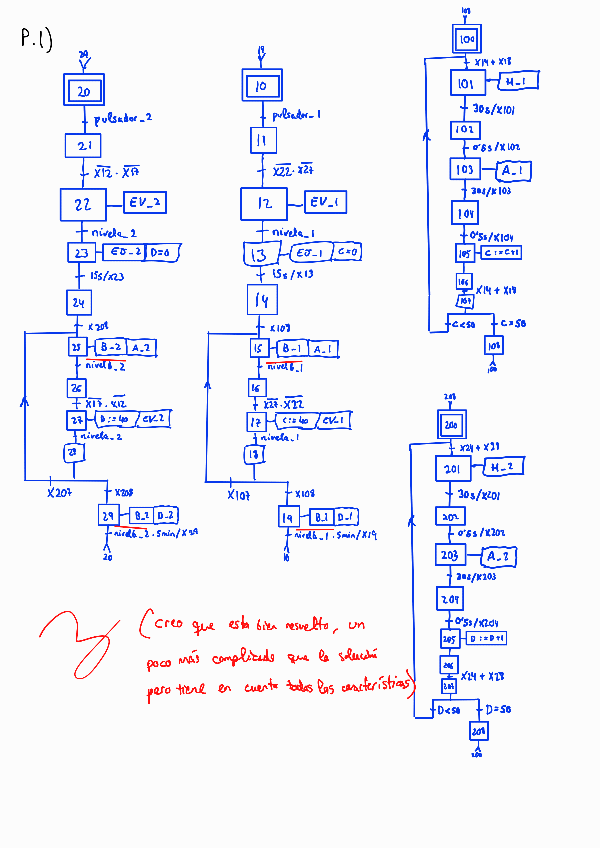 P.1)
29
20
pulsador_2
21
X12·X17
22
EV_2
nivela_2
23
EV_2
D=0
15s/X23
24
X208
25
B_2
A_2
nivelb_2
26
X17·X12
27
D:=40
EV_2
nivela_2
28
X207
X208
29
B_2
D_2
nivelb_2·5min/X29
20
19
10
pulsador_1
11
X22·X27
12
EV_1
nivela_1
13
EV_1
C=0
15s/X13
14
X108
15
B_1
A_1
nivelb_1
16
X27·X22
17
C:=40
EV_1
nivela_1
18
X107
X108
19
B_1
D_1
nivelb_1·5min/X19
10
108
100
X14+X18
101
M_1
30s/X101
102
0'5s/X102
103
A_1
30s/X103
104
0'5s/X104
105
C:=C+1
106
X14+X18
107
C<50
C=50
108
100
208
200
X24+X28
201
M_2
30s/X201
202
0'5s/X202
203
A_2
30s/X203
204
0'5s/X204
205
D:=D+1
206
X24+X28
207
D<50
D=50
208
200
(creo que esta bien resuelto, un
poco más complicado que la solución
pero tiene en cuenta todas las características)